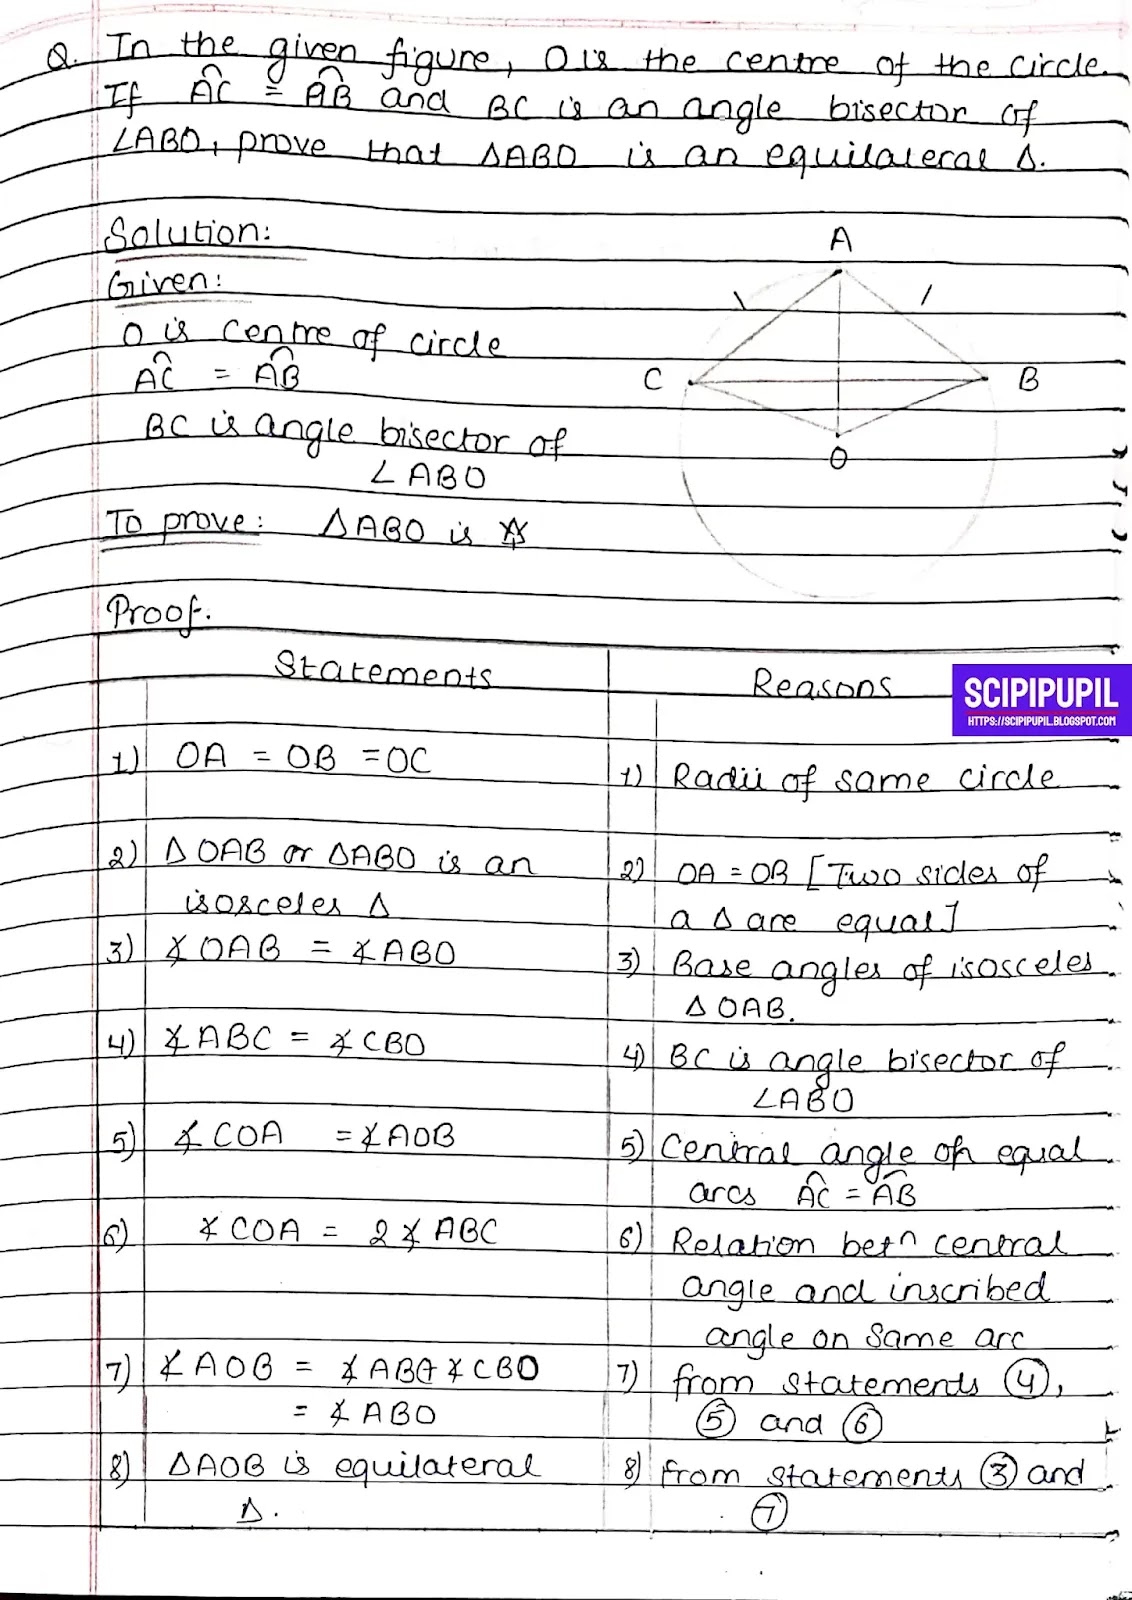 Q. In the given figure, O is the centre of the circle.
If A͡C = A͡B and BC is an angle bisector of
∠ABO, prove that ΔABO is an equilateral Δ.
Solution:
Given:
O is centre of circle
A͡C = A͡B
BC is angle bisector of
∠ABO
To prove: ΔABO is
A
C
B
O
Proof.
Statements
Reasons
SCIPIPUPIL
HTTPS://SCIPIPUPIL.BLOGSPOT.COM
1) OA = OB = OC
1) Radii of same circle
2) ΔOAB or ΔABO is an
isosceles Δ
2) OA = OB [Two sides of
a Δ are equal]
3) ∡OAB = ∡ABO
3) Base angles of isosceles
ΔOAB.
4) ∡ABC = ∡CBO
4) BC is angle bisector of
∠ABO
5) ∡COA = ∡AOB
5) Central angle of equal
arcs A͡C = A͡B
6) ∡COA = 2∡ABC
6) Relation betⁿ central
angle and inscribed
angle on same arc
7) ∡AOB = ∡ABC+∡CBO
= ∡ABO
7) from statements ④,
⑤ and ⑥
8) ΔAOB is equilateral
Δ.
8) from statements ③ and
⑦